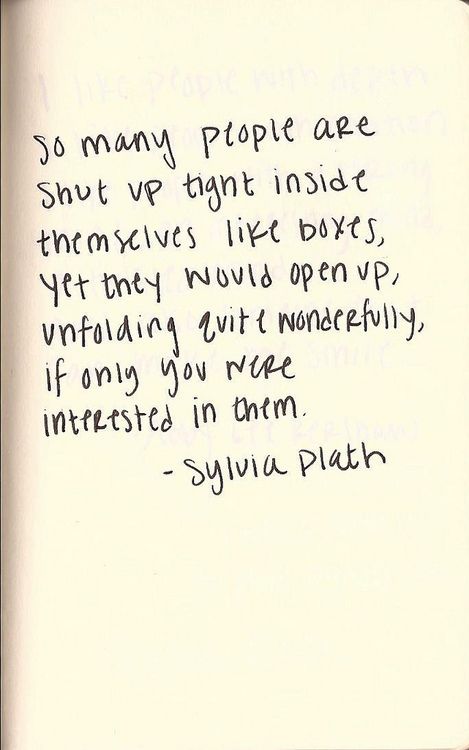 so many people are
shut up tight inside
themselves like boxes,
yet they would open up,
unfolding quite wonderfully,
if only you were
interested in them.
- Sylvia Plath